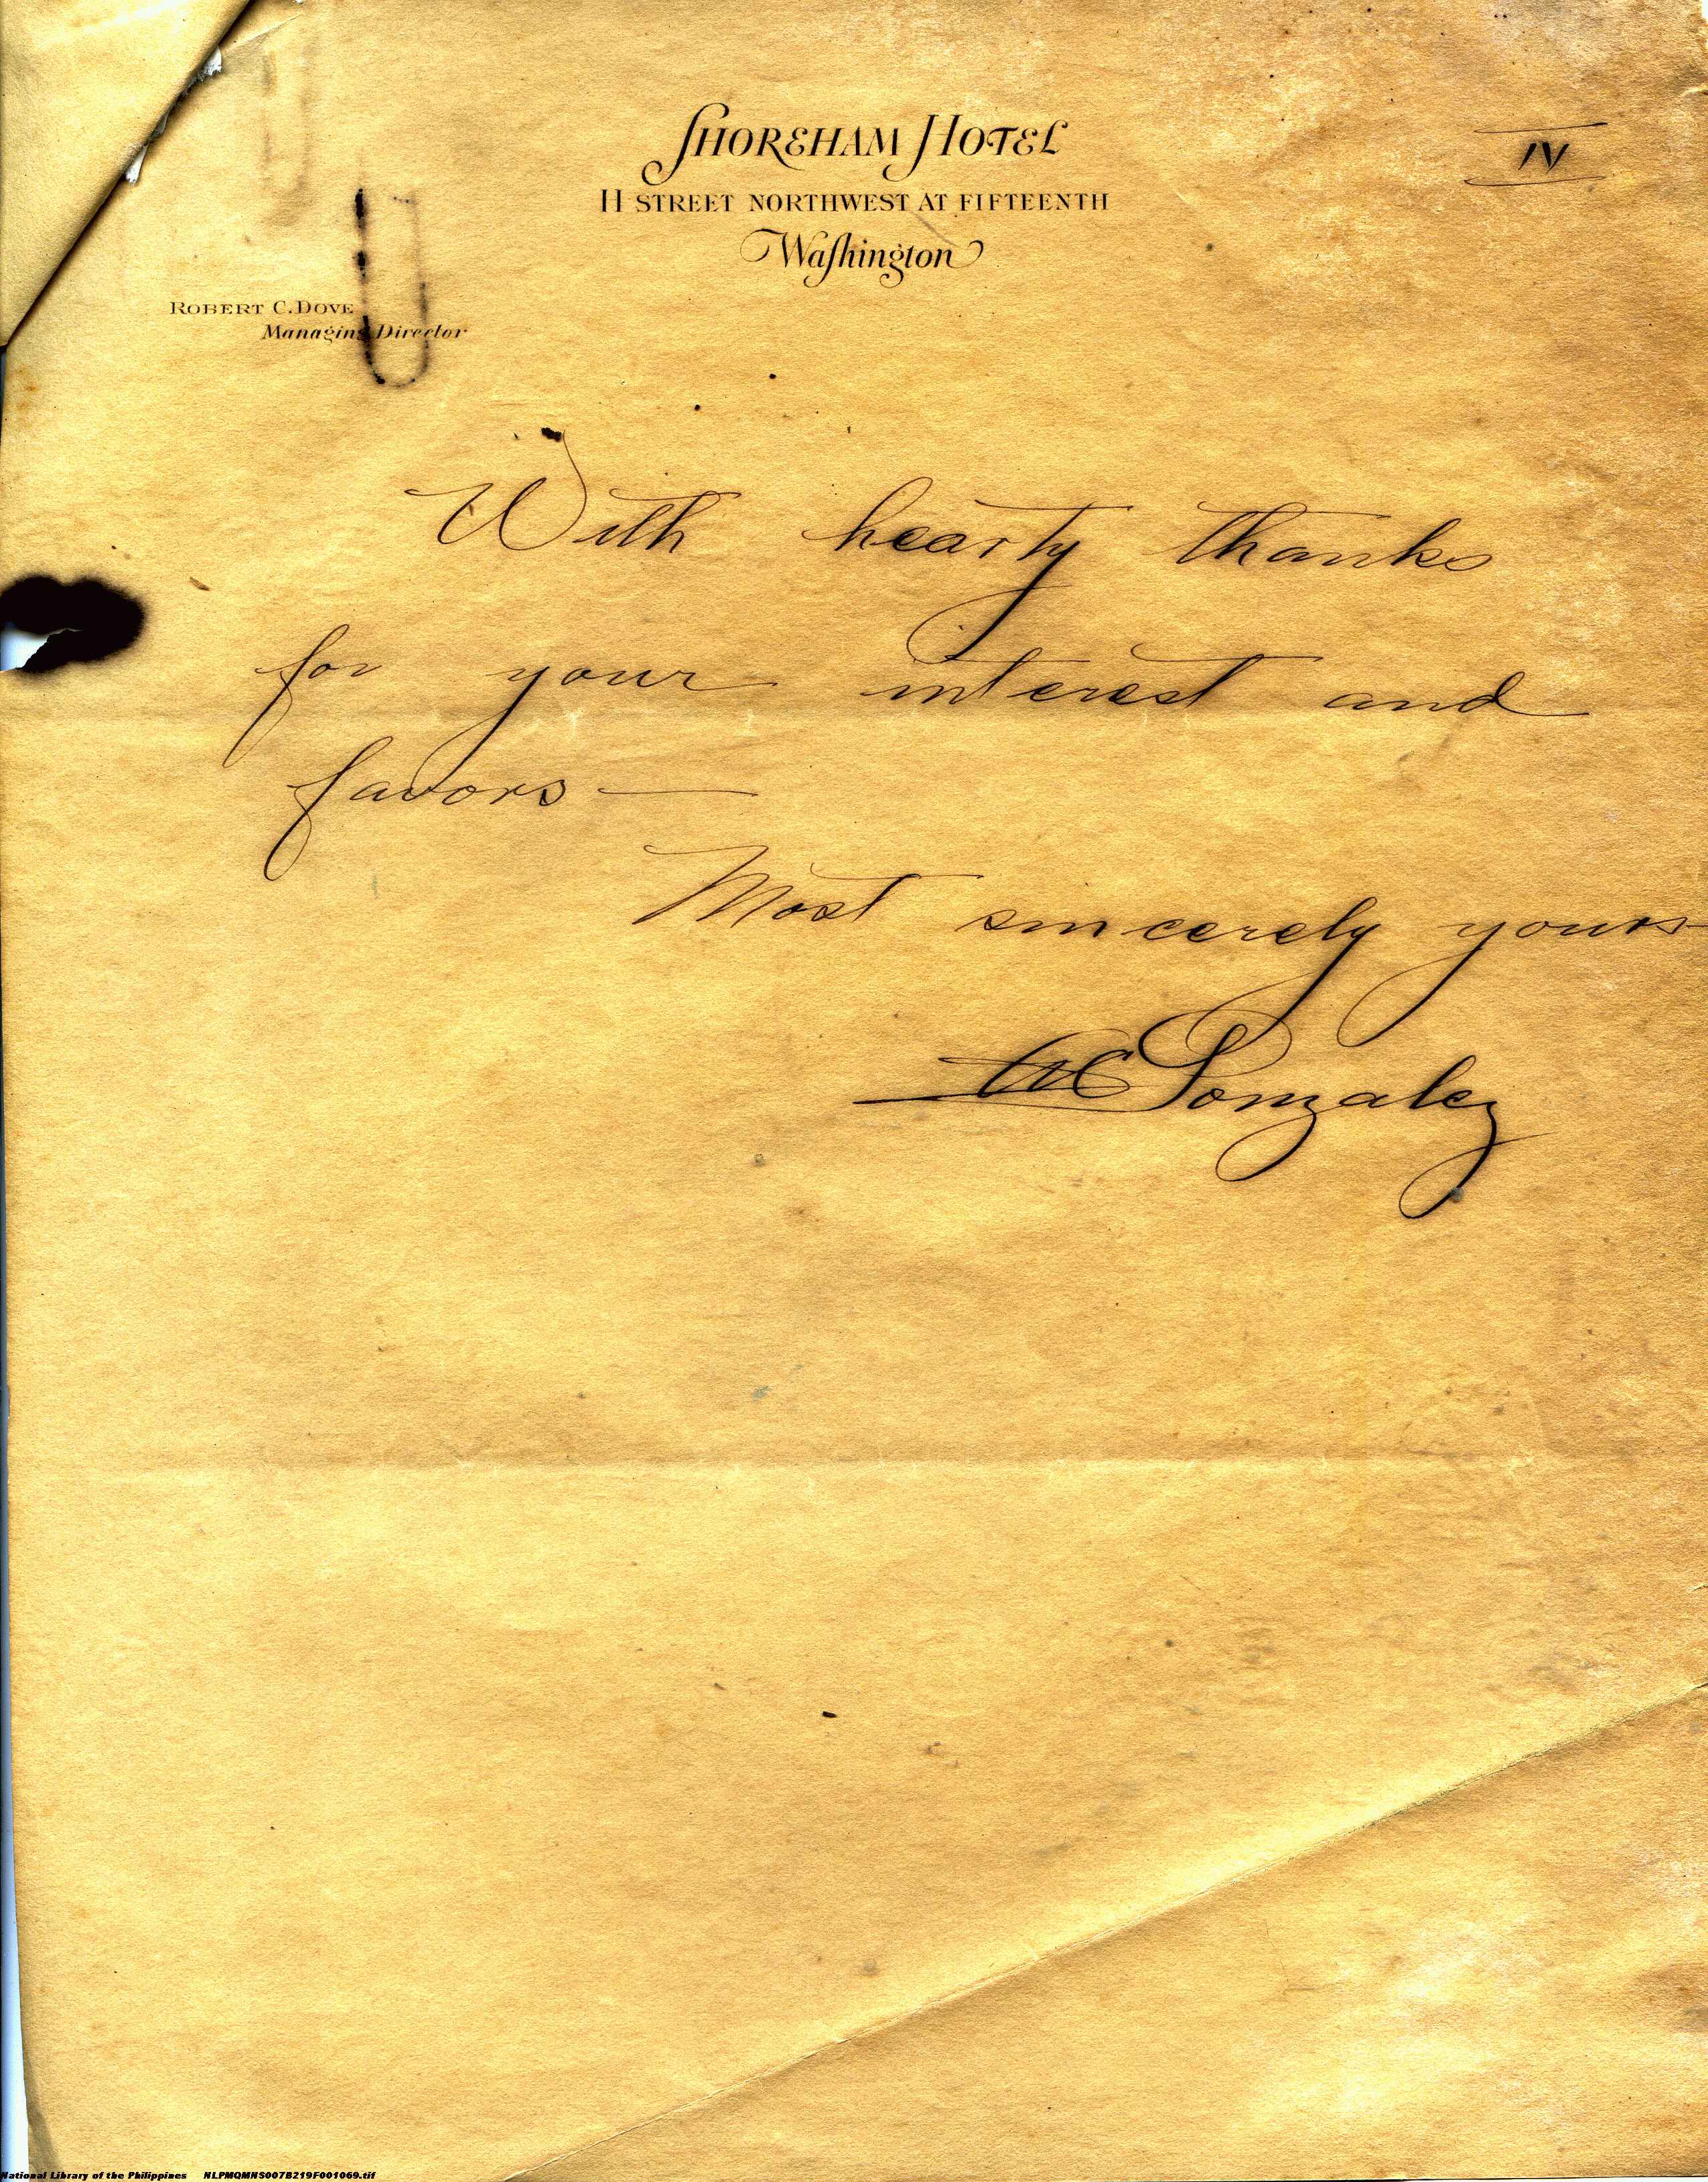 SHOREHAM HOTEL
IV
H STREET NORTHWEST AT FIFTEENTH
Washington
ROBERT C. DOVE
Managing Director
With hearty thanks
for your interest and
favors —
Most sincerely yours
Gonzalez
National Library of the Philippines NLPMQMNS007B219F001069.tif